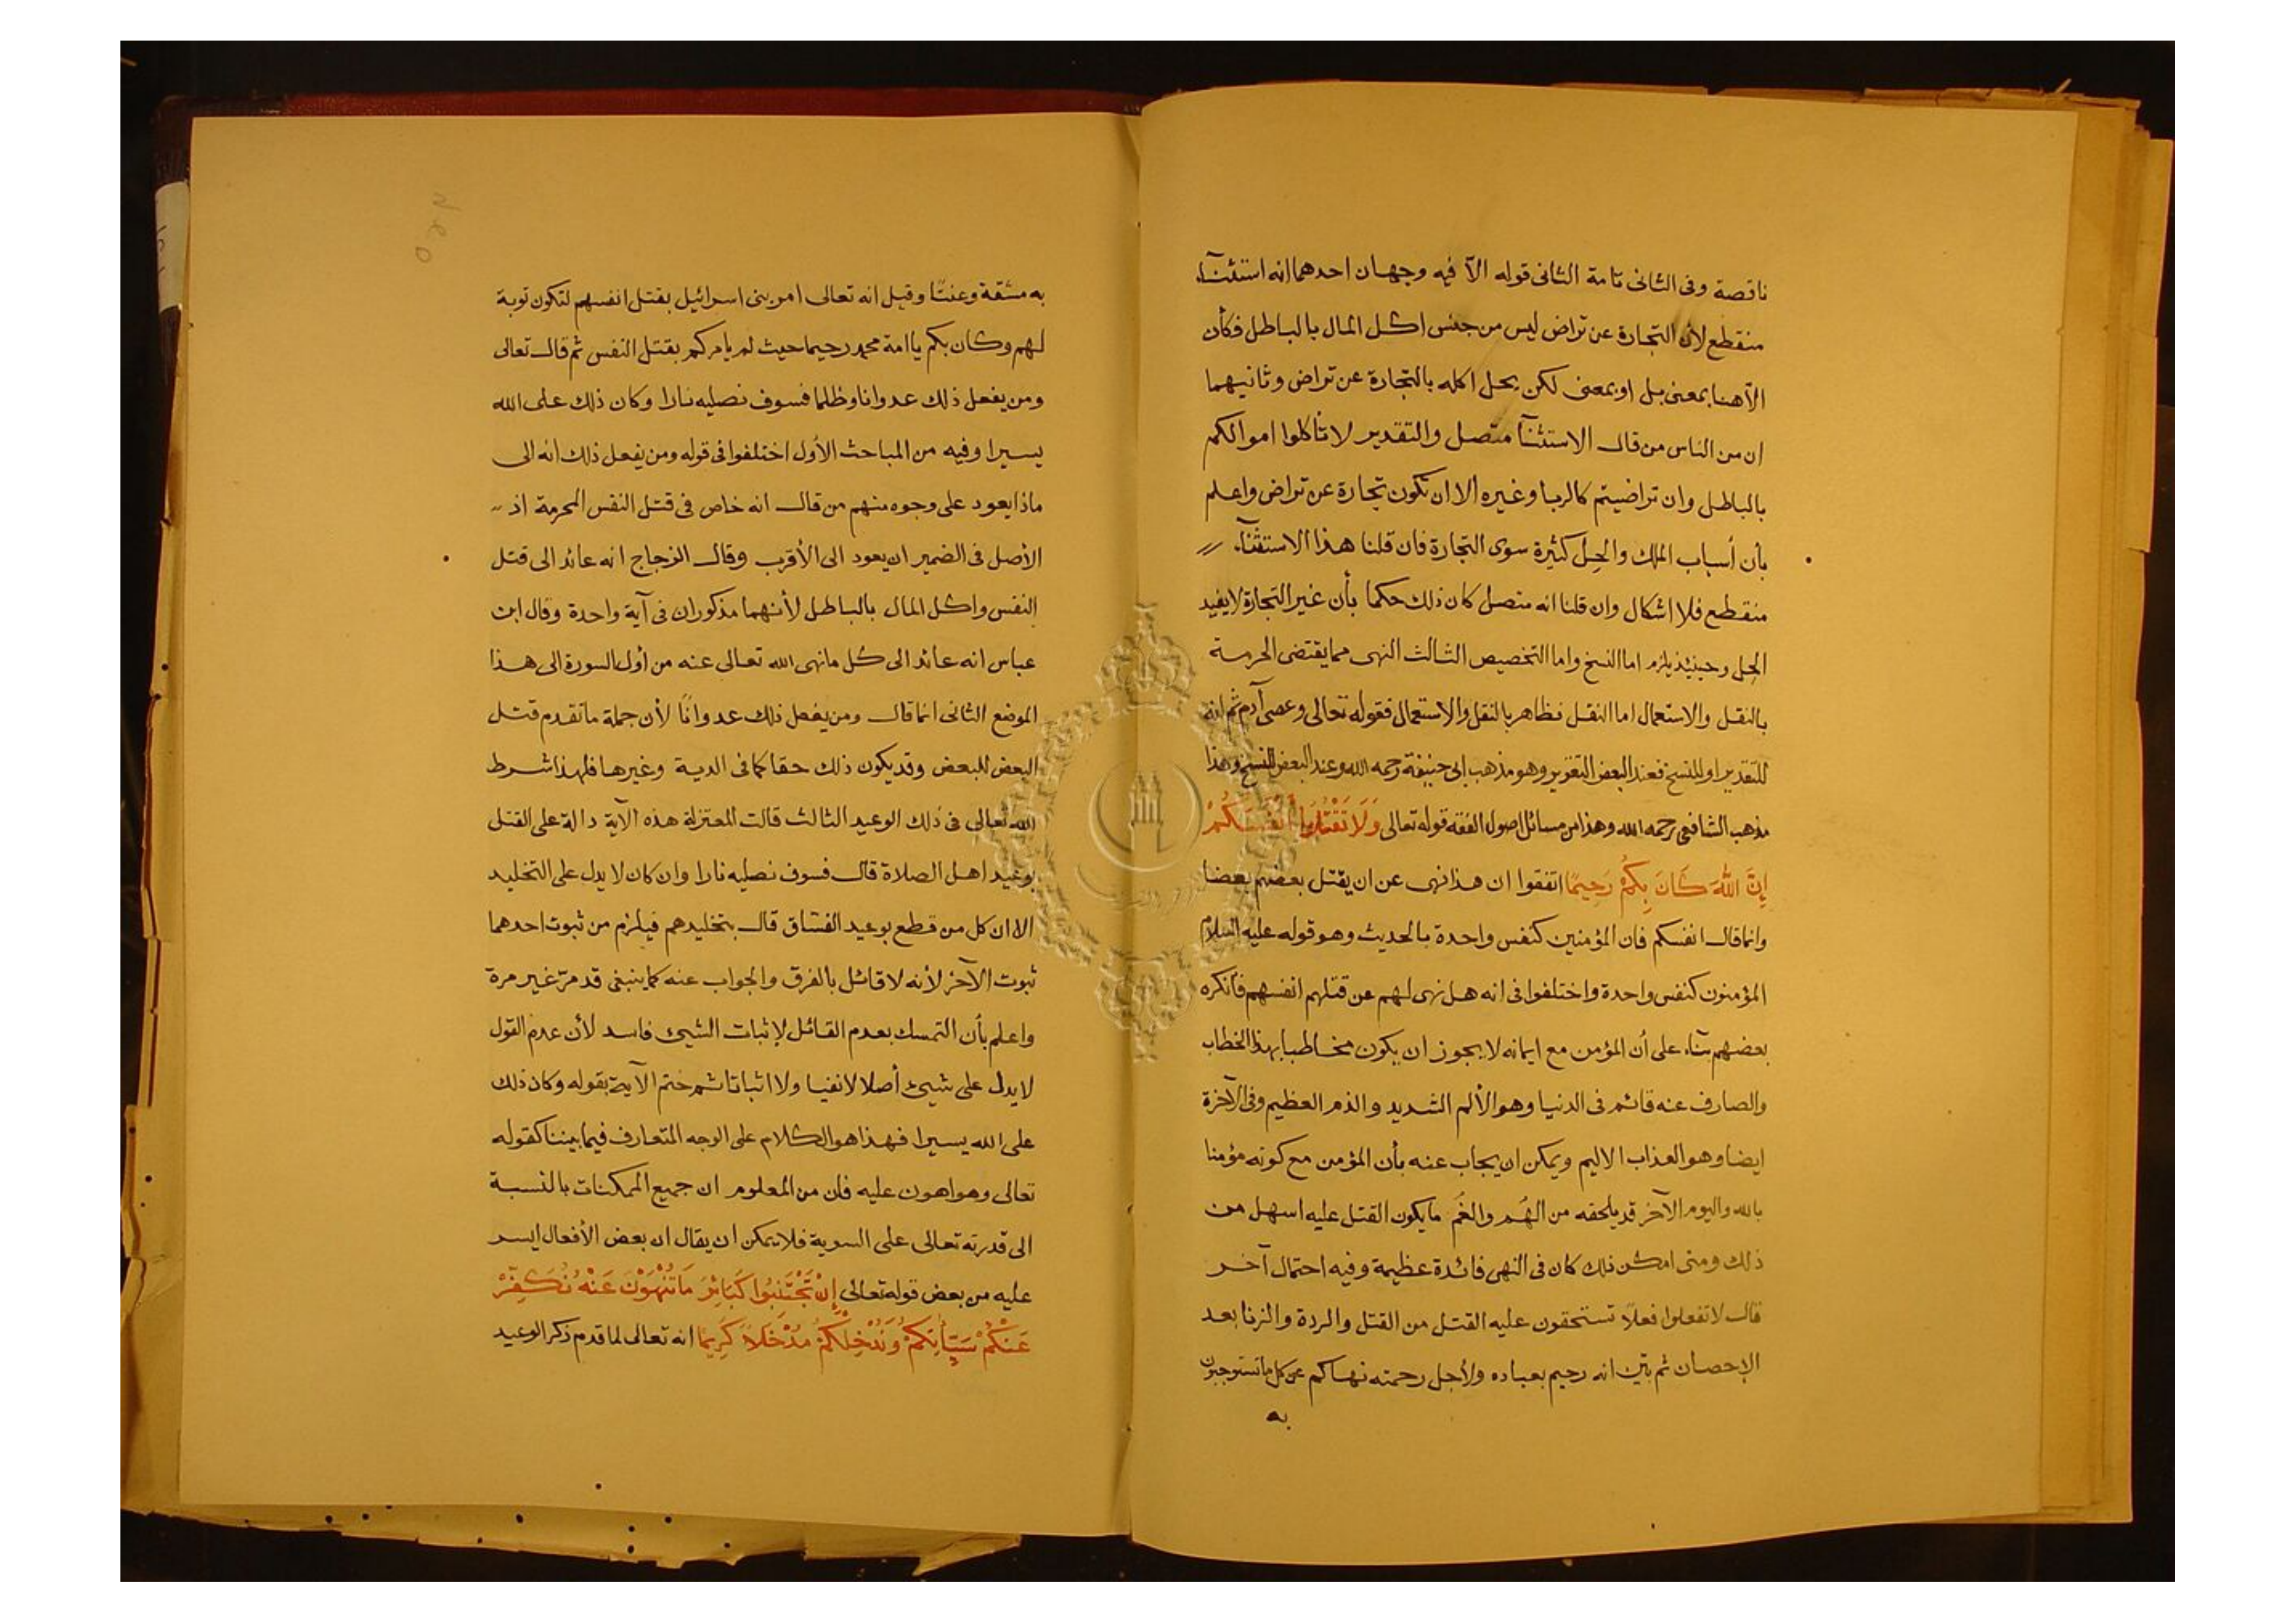 ناقصة وفى الثانى تامة الثانى قوله الآ فيه وجهان احدهما انه استثنآء
منقطع لأن التجارة عن تراض ليس من جنس اكل المال بالباطل فكأن
الآهنا بمعنى بل او بمعنى لكن يحل اكله بالتجارة عن تراض وثانيهما
ان من الناس من قال الاستثنآ متصل والتقدير لا تأكلوا اموالكم
بالباطل وان تراضيتم كالربا وغيره الا ان تكون تجارة عن تراض واعلم
بأن أسباب الملك والحِل كثيرة سوى التجارة فان قلنا هذا الاستثنآء
منقطع فلا اشكال وان قلنا انه متصل كان ذلك حكما بأن غير التجارة لا يفيد
الحِل وحينئذ يلزم اما النسخ واما التخصيص الثالث النهى مما يقتضى الحرمة
بالنقل والاستعمال اما النقل فظاهر بالنقل والاستعمال فقوله تعالى وعصى آدم ثم انه
للتقدير او للنسخ فعند البعض التقرير وهو مذهب ابى حنيفة رحمه الله وعند البعض النسخ وهذا
مذهب الشافعى رحمه الله وهذا من مسائل اصول الفقه قوله تعالى وَلَا تَقْتُلُوا أَنْفُسَكُمْ
إِنَّ اللَّهَ كَانَ بِكُمْ رَحِيمًا اتفقوا ان هذا نهى عن ان يقتل بعضهم بعضا
وانما قال انفسكم فان المؤمنين كنفس واحدة بالحديث وهو قوله عليه السلام
المؤمنون كنفس واحدة واختلفوا فى انه هل نهى لهم عن قتلهم انفسهم فأنكره
بعضهم بنآء على أن المؤمن مع ايمانه لا يجوز ان يكون مخاطبا بهذا الخطاب
والصارف عنه قائم فى الدنيا وهو الألم الشديد والذم العظيم وفى الآخرة
ايضا وهو العذاب الاليم ويمكن ان يجاب عنه بأن المؤمن مع كونه مؤمنا
بالله واليوم الآخر قد يلحقه من الهَم والغَم ما يكون القتل عليه اسهل من
ذلك ومتى امكن ذلك كان فى النهى فائدة عظيمة وفيه احتمال آخر
قال لا تفعلوا فعلًا تستحقون عليه القتل من القتل والردة والزنا بعد
الإحصان ثم بيّن انه رحيم بعباده ولأجل رحمته نهاكم عن كل ما تستوجبون
به
به مشقة وعنتًا وقيل انه تعالى امر بنى اسرائيل بقتل انفسهم لتكون توبة
لهم وكان بكم يا امة محمد رحيما حيث لم يأمركم بقتل النفس ثم قال تعالى
ومن يفعل ذلك عدوانا وظلما فسوف نصليه نارا وكان ذلك على الله
يسيرا وفيه من المباحث الأول اختلفوا فى قوله ومن يفعل ذلك انه الى
ماذا يعود على وجوه منهم من قال انه خاص فى قتل النفس المحرمة اذ
الأصل فى الضمير ان يعود الى الأقرب وقال الزجاج انه عائد الى قتل
النفس واكل المال بالباطل لأنهما مذكوران فى آية واحدة وقال ابن
عباس انه عائد الى كل ما نهى الله تعالى عنه من أول السورة الى هذا
الموضع الثانى انما قال ومن يفعل ذلك عدوانًا لأن جملة ما تقدم قتل
البعض للبعض وقد يكون ذلك حقا كما فى الدية وغيرها فلهذا شرط
الله تعالى فى ذلك الوعيد الثالث قالت المعتزلة هذه الآية دالة على القتل
بوعيد اهل الصلاة قال فسوف نصليه نارا وان كان لا يدل على التخليد
الا ان كل من قطع بوعيد الفساق قال بتخليدهم فيلزم من ثبوت احدهما
ثبوت الآخر لأنه لا قائل بالفرق والجواب عنه كما ينبغى قد مرّ غير مرة
واعلم بأن التمسك بعدم القائل لإثبات الشيئ فاسد لأن عدم القول
لا يدل على شيئ أصلا لا نفيا ولا اثباتا ثم ختم الآية بقوله وكان ذلك
على الله يسيرا فهذا هو الكلام على الوجه المتعارف فيما بيننا كقوله
تعالى وهو اهون عليه فان من المعلوم ان جميع الممكنات بالنسبة
الى قدرته تعالى على السوية فلا يمكن ان يقال ان بعض الأفعال ايسر
عليه من بعض قوله تعالى إِنْ تَجْتَنِبُوا كَبَائِرَ مَا تُنْهَوْنَ عَنْهُ نُكَفِّرْ
عَنْكُمْ سَيِّأتِكُمْ وَنُدْخِلْكُمْ مُدْخَلًا كَرِيمًا انه تعالى لما قدم ذكر الوعيد